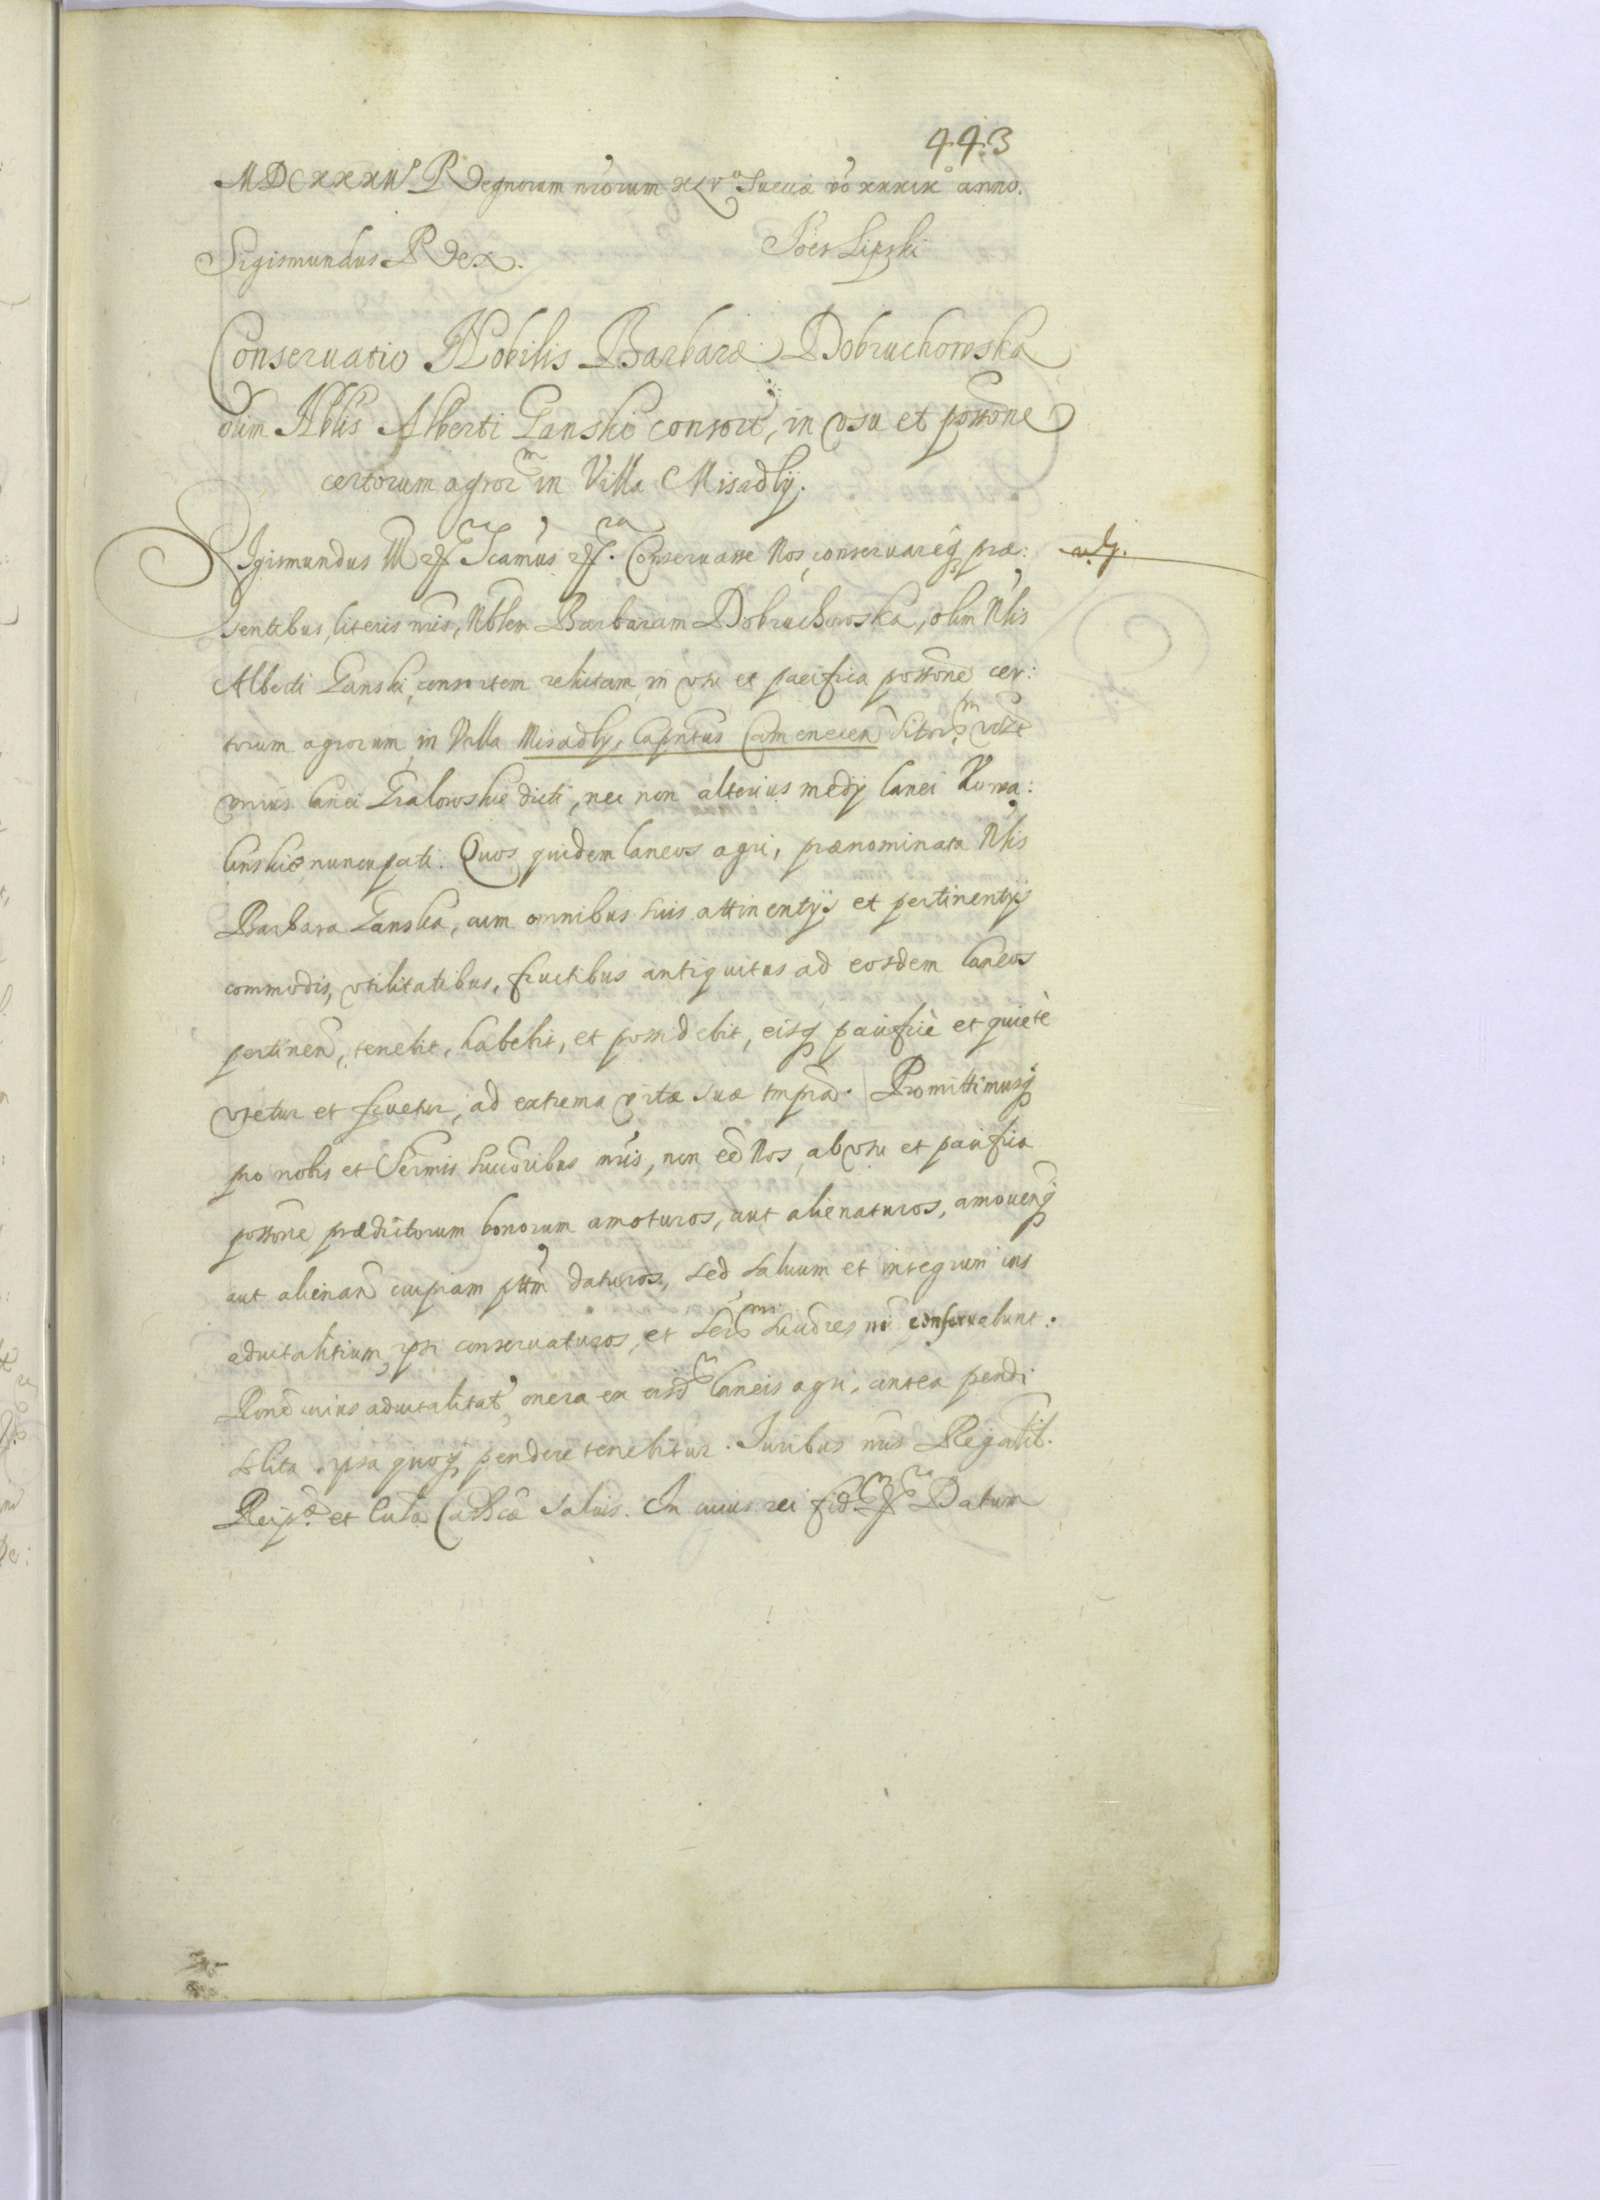 443
MDCXXXII Regnorum nrorum XLVo Sueciæ vo xxxixo anno.
Sigismundus Rex. Joës Lipski
Conseruatio Nobilis Barbaræ Dobruchowska
olim Nblis Alberti Lanskie consort, in vsu et possōne
certorum agrorm in Villa Misadly.
Sigismundus III Conseruasse Nos, conseruareq præ:
sentibus literis nris, Nblem Barbaram Dobruchowska, olim Nlis
Alberti Lanski, consortem relictam, in vsu et pacifica possōne cer:
torum agrorum, in Villa Misadly, Capntus Camenecen sitorm vizt
vnius lanei dicti, nec non alterius medij lanei Kowa:
linskie nuncupati. Quos quidem laneos agri, prænominata Nlis
Barbara Lanska, cum omnibus suis attinentijs et pertinentijs
commodis, vtilitatibus, fructibus antiquitus ad eosdem laneos
pertinen, tenebit, habebit, et possidebit, eisq pacificè et quietè
vtetur et fruetur, ad extrema vitæ suæ tmpra. Promittimusq
pro nobis et Sermis succoribus nris, non eē Nos, ab vsu et pacifica
possōne prædictorum bonorum amoturos, aut alienaturos, amouenq
aut alienan cuipiam pttm daturos, sed saluum et integrum ius
aduitalitium ipsi conseruaturos, et Sermi succores nri conseruabunt.
Rone cuius aduitalitat, onera ex eisd laneis agri, antea pendi
solita, ipsa quoq pendere tenebitur. Juribus nris Regalib.
Reipcæ et Ecclæ Cathcæ saluis. In cuius rei fidem Datum